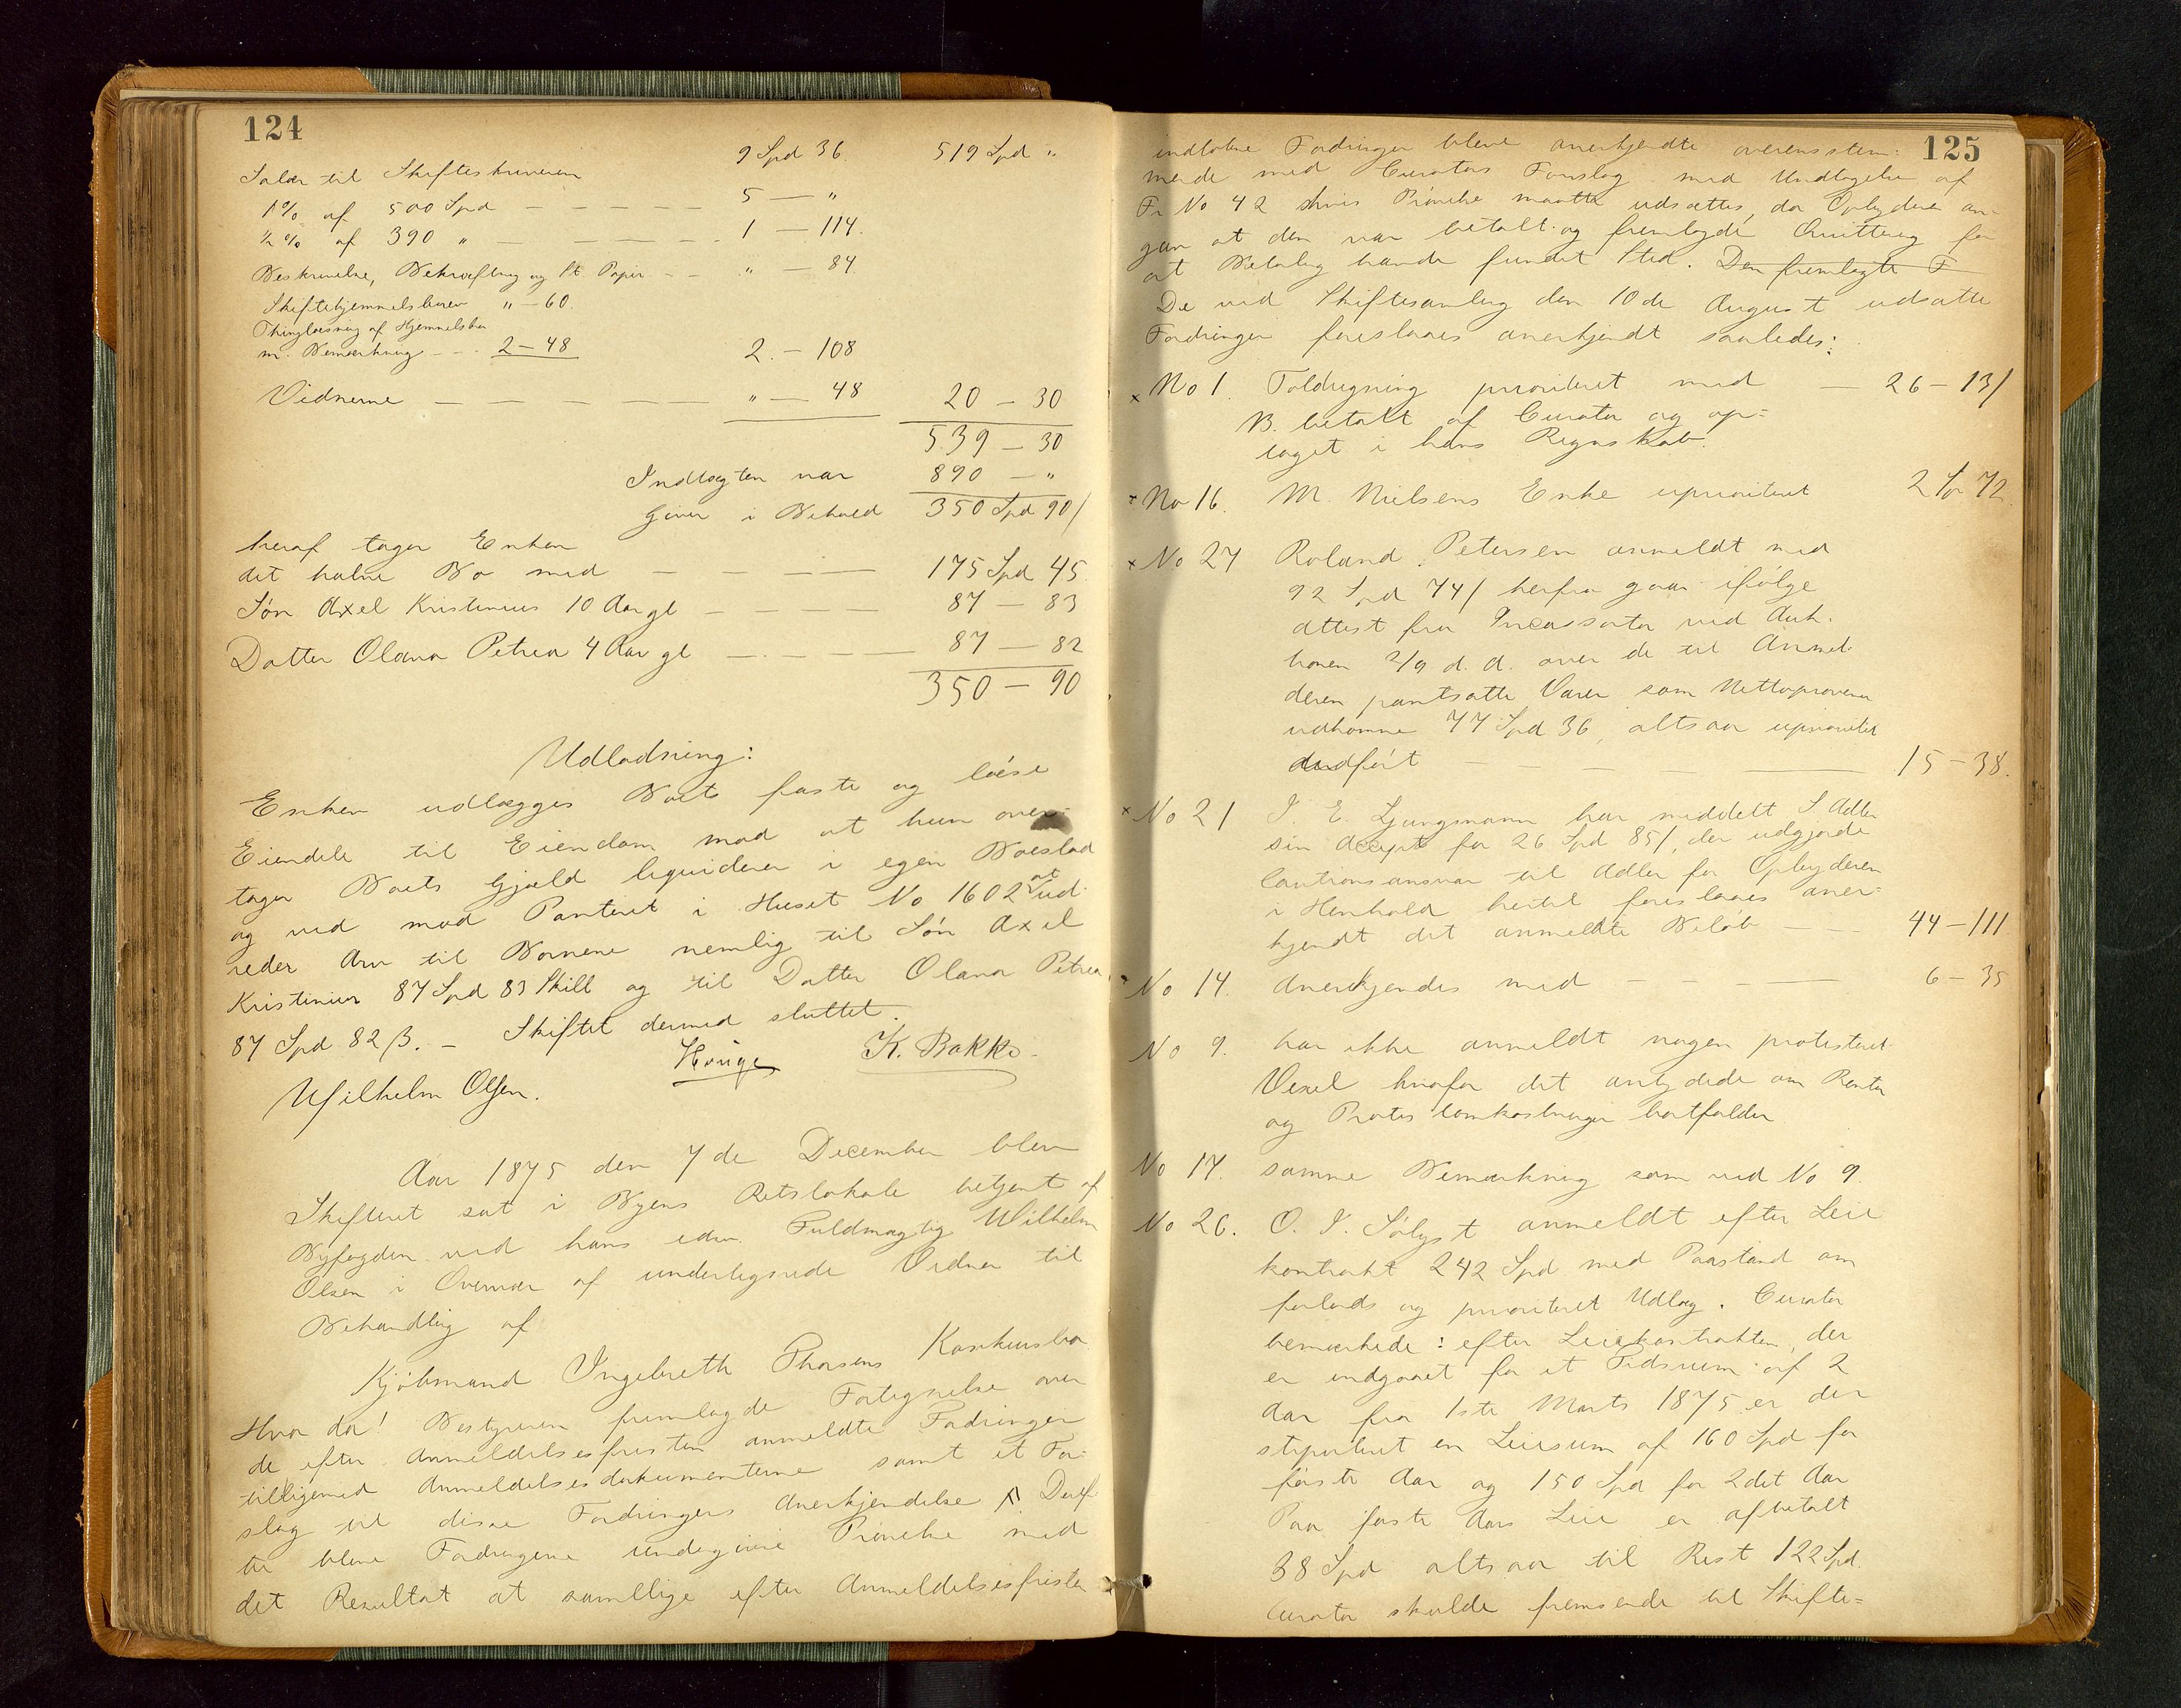 124
9 Spd 36. 519 Spd "
Salær til Skifteskriveren
1% af 500 Spd — — — — — 5 — "
½% af 390 " — — — — — 1 — 114.
Beskrivelse, Bekræftning og St. Papir — — " — 84.
Skiftehjemmelsbrev " — 60.
Thinglæsning af Hjemmelsbr
m. Bemærkning — — 2 — 48 2. — 108
Vidnerne — — — — — — " — 48 20 — 30
539 — 30
Indtægten var 890 — "
Giver i Behold 350 Spd 90/
heraf tager Enken
det halve Bo med — — — — 175 Spd 45.
Søn Axel Kristinius 10 Aar gl — — — — 87 — 83
Datter Olava Petrea 4 Aar gl — — — — 87 — 82
350 — 90
Udlodning:
Enken udlægges Boets faste og løse
Eiendele til Eiendom mod at hun over-
tager Boets Gjæld liquiderer i egen Boeslod
og ved mod Panteret i Huset No 1602 at ud-
reder Arv til Børnene nemlig til Søn Axel
Kristinius 87 Spd 83 Skill og til Datter Olava Petrea
87 Spd 82 β. — Skiftet dermed sluttet.
Hauge K. Bakke.
Wilhelm Olsen.
Aar 1875 den 7de December blev
Skifteret sat i Byens Retslokale betjent af
Byfogden ved hans edsv. Fuldmægtig Wilhelm
Olsen i Overvær af undertegnede Vidner til
Behandling af
Kjøbmand Ingebreth Thorsens Konkursbo
Hvor da! Bestyreren fremlagde Fortegnelse over
de efter Anmeldelsesfristen anmeldte Fordringer
tilligemed Anmeldelsesdokumenterne samt et For-
slag til disse Fordringers Anerkjendelse Deref-
ter bleve Fordringerne undergivne Prøvelse med
det Resultat at samtlige efter Anmeldelsesfristen
125
indkomne Fordringer bleve anerkjendte overensstem-
mende med Curators Forslag med Undtagelse af
Fr No 42 hvis Prøvelse maatte udsættes, da Opbyderen an-
gav at den var betalt og fremlagde Qvittering for
at Betaling havde fundet Sted. Den fremlagte F
De ved Skiftesamling den 10de August udsatte
Fordringer foreslaaes anerkjendt saaledes:
× No 1. Toldregning prioriteret med — 26 — 13/
B. betalt af Curator og op-
taget i hans Regnskab.
× No 16. M. Nielsens Enke uprioriteret 2 Sp 72
× No 27 Roland Petersen anmeldt med
92 Spd 74/ herfra gaar ifølge
Attest fra Incassator ved Auk-
tionen 2/9 d. A. over de til Anmel-
deren pantsatte Varer som Nettoprovenu
udkomne 77 Spd 36, altsaa uprioritet
udført — — — — 15 — 38.
× No 21 I. E. Ljungmann har meddelt S. Adler
sin Accept for 26 Spd 85/, der udgjorde
Cautionsansvar til Adler for Opbyderen
i Henhold hertil foreslaaes aner-
kjendt det anmeldte Beløb — — 44 — 111
No 14. Anerkjendes med — — — — 6 — 35
No 9. har ikke anmeldt nogen protesteret
Vexel hvorfor det antydede om Renter
og Protestomkostninger bortfalder
No 17. samme Bemærkning som ved No 9.
No 26. O. I. Sølyst anmeldt efter Leie
kontrakt 242 Spd med Paastand om
forlods og prioriteret Udlæg. Curator
bemærkede: efter Leiekontrakten, der
er indgaaet for et Tidsrum af 2
Aar fra 1ste Marts 1875 er der
stipuleret en Leiesum af 160 Spd for
første Aar og 150 Spd for 2det Aar
Paa første Aars Leie er afbetalt
38 Spd altsaa til Rest 122 Spd.
Curator skulde fremsende til Skifte-